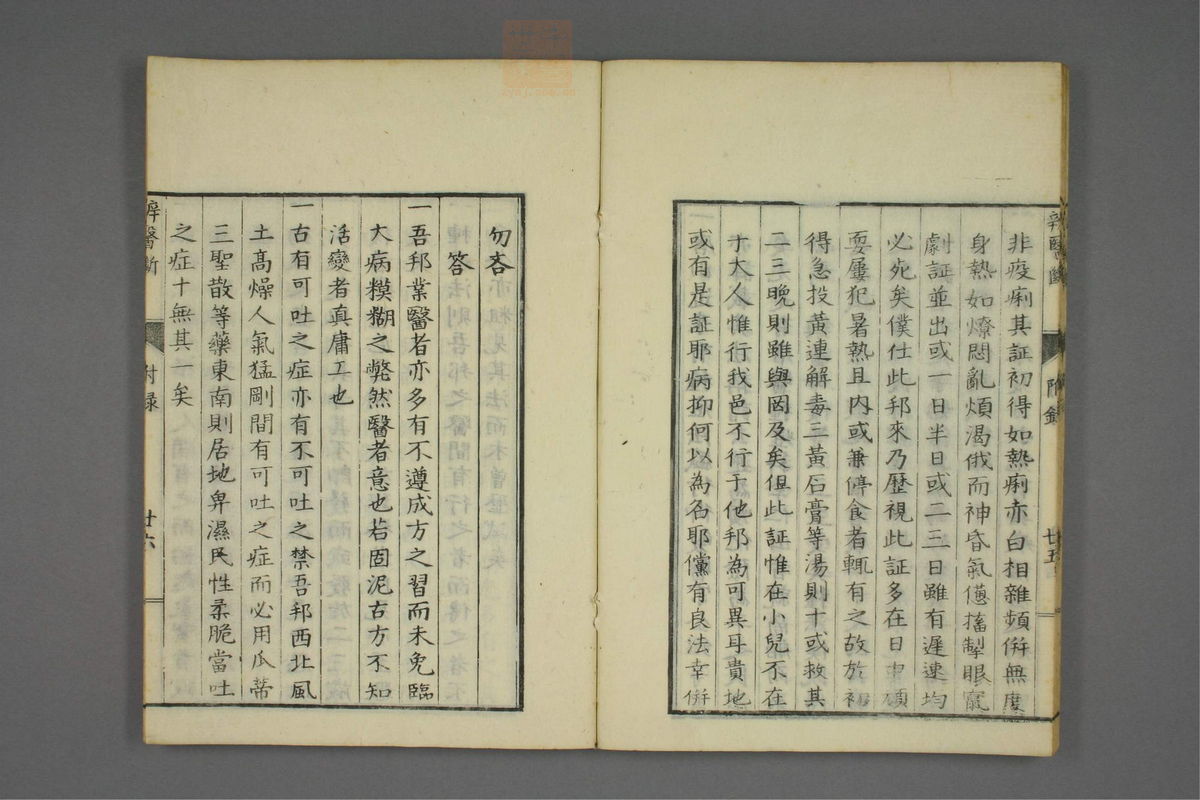 辨醫斷
附錄
廿五
非疫痢其証初得如熱痢赤白相雜頻併無度
身熱如燎悶亂煩渴俄而神昏氣憊搐掣眼竄
劇証並出或一日半日或二三日雖有遲速均
必死矣僕仕此邦來乃歷視此証多在日中頑
耍屢犯暑熱且內或兼停食者輒有之故於初
得急投黃連解毒三黃石膏等湯則十或救其
二三晚則雖與罔及矣但此証惟在小兒不在
于大人惟行我邑不行于他邦為可異耳貴地
或有是証耶病抑何以為名耶儻有良法幸併
勿吝
答
一吾邦業醫者亦多有不遵成方之習而未免臨
大病糢糊之弊然醫者意也若固泥古方不知
活變者真庸工也
一古有可吐之症亦有不可吐之禁吾邦西北風
土高燥人氣猛剛間有可吐之症而必用瓜蒂
三聖散等藥東南則居地卑濕民性柔脆當吐
之症十無其一矣
辨醫斷
附錄
廿六